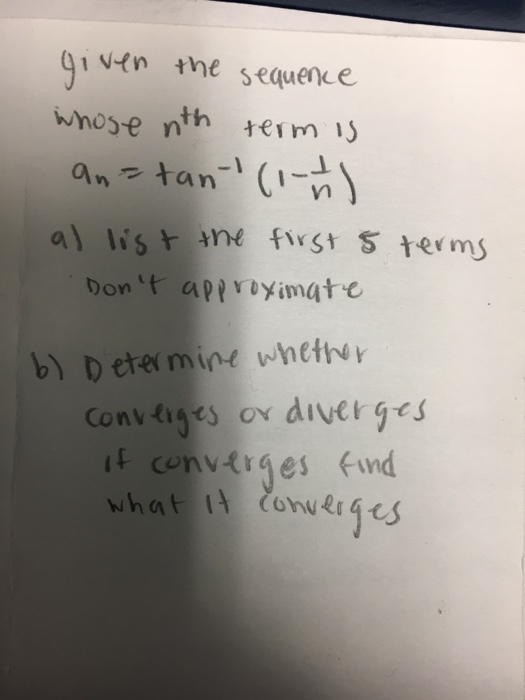 given the sequence
whose nth term is
an = tan⁻¹ (1 - 1/n)
a) list the first 5 terms
Don't approximate
b) Determine whether
converges or diverges
if converges find
what it converges